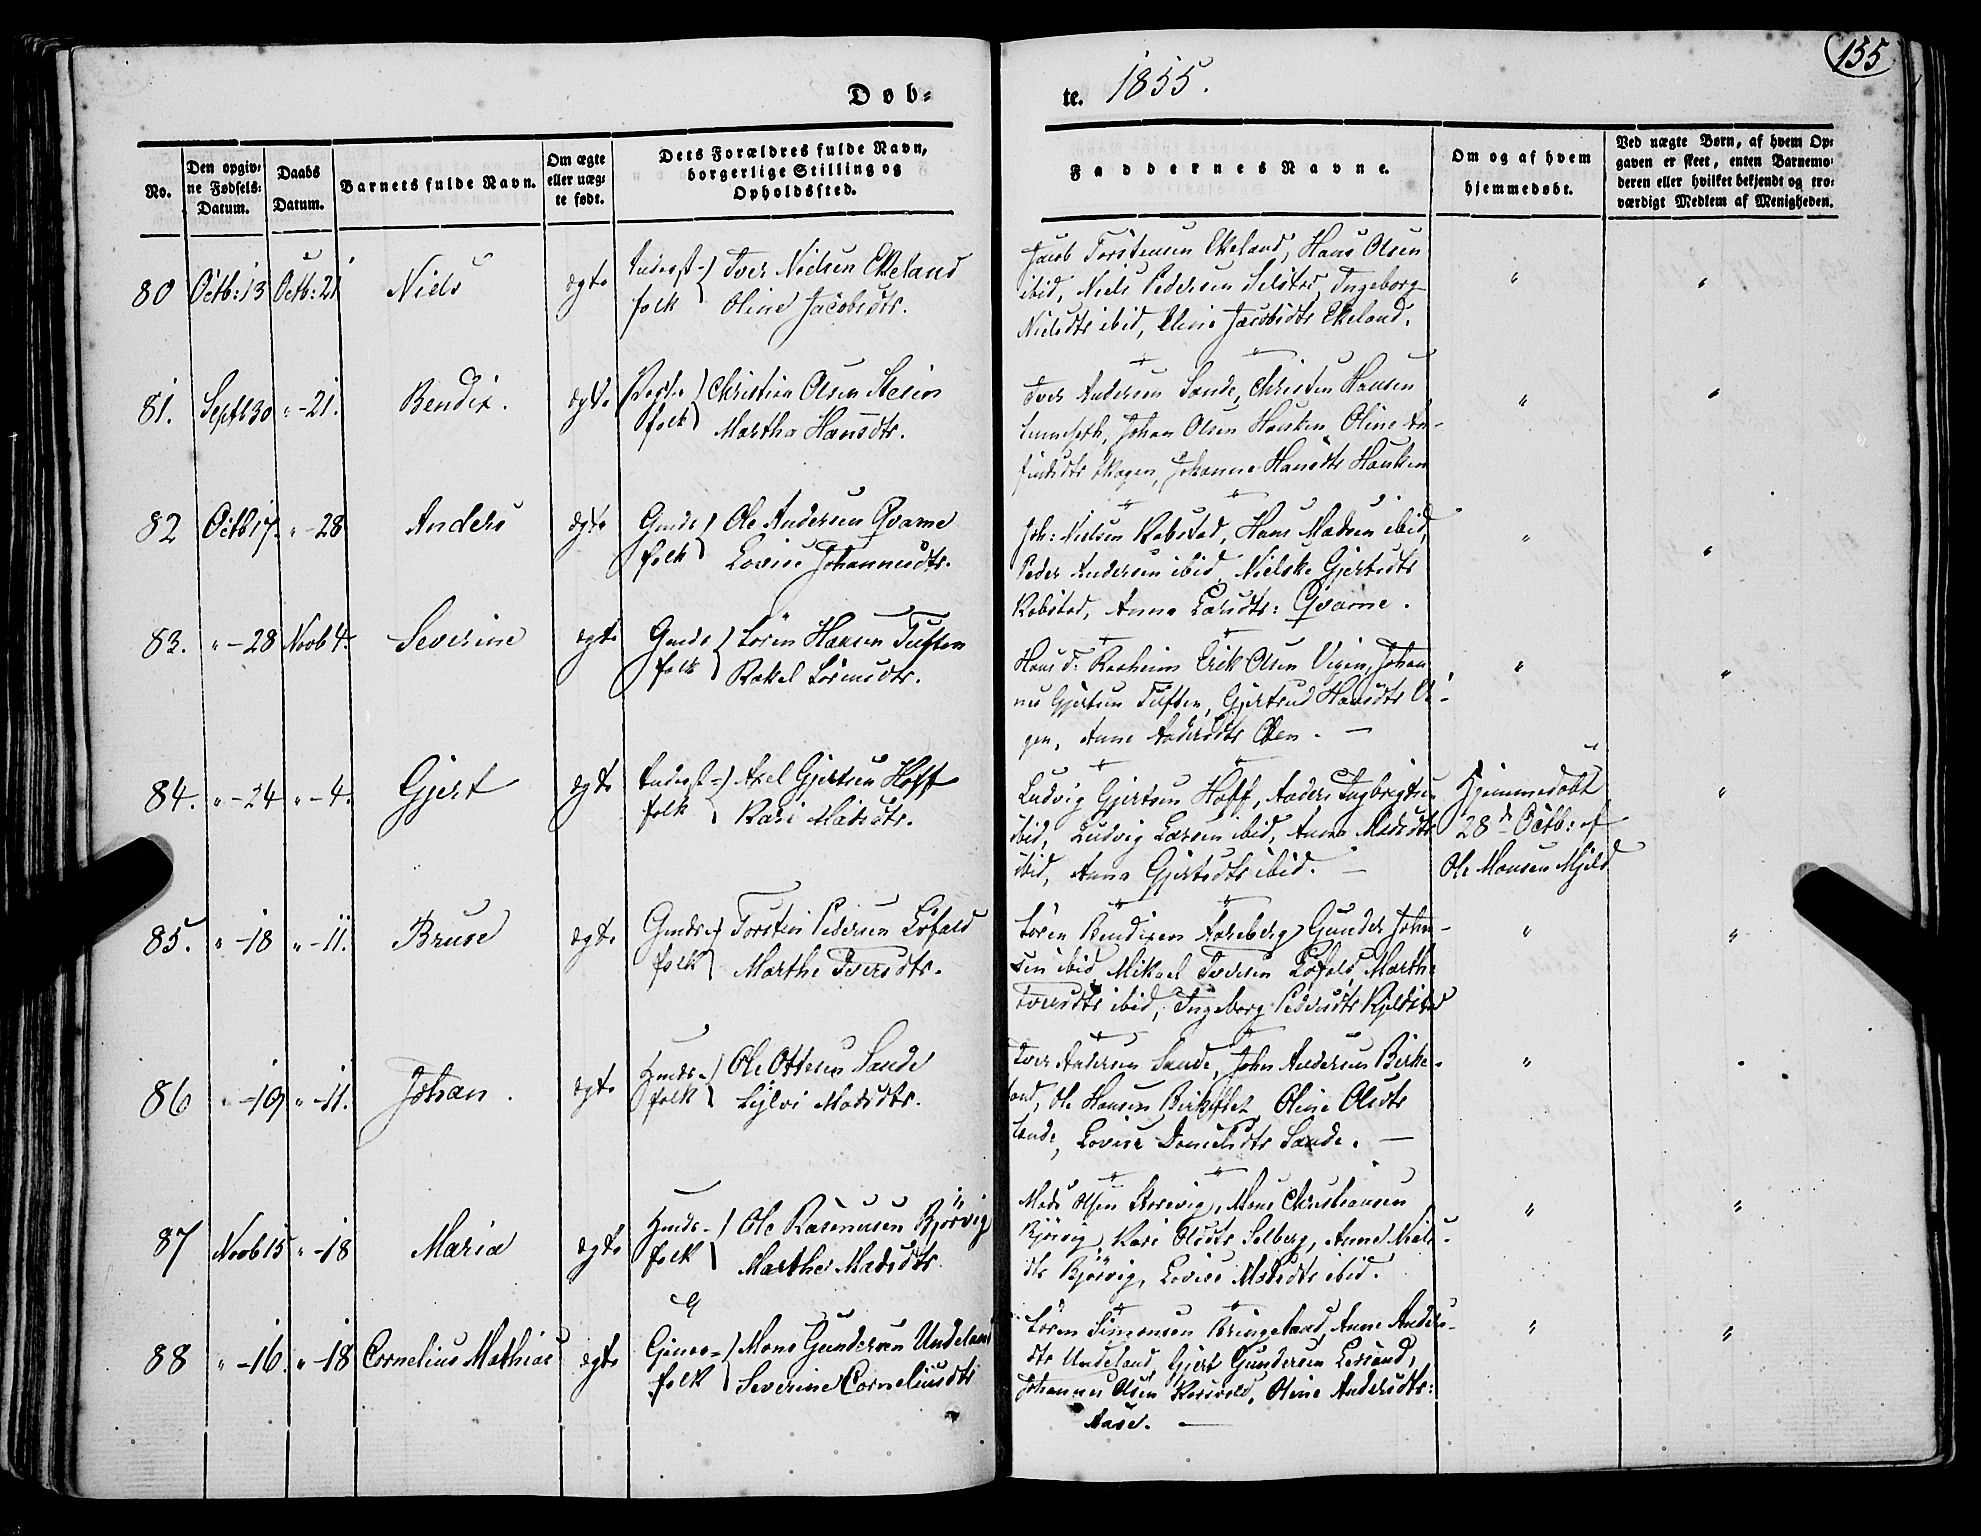 155
Døb-
te. 1855.
No.
Den opgiv-
ne Fødsels-
Datum.
Daabs
Datum.
Barnets fulde Navn.
Om ægte
eller uæg-
te født.
Dets Forældres fulde Navn,
borgerlige Stilling og
Opholdssted.
Faddernes Navne.
Om og af hvem
hjemmedøbt.
Ved uægte Børn, af hvem Op-
gaven er skeet, enten Barnemo-
deren eller hvilket bekjendt og tro-
værdigt Medlem af Menigheden.
80 Octb: 13 Octb: 21 Niels ægte Inderst- Iver Nielsen Ekeland
folk Oline Jacobsdtr.
Jacob Torstensen Ekeland, Hans Olsen
ibid, Niels Pedersen Selstad, Ingeborg
Nielsdtr ibid, Eline Jacobsdtr Ekeland.
81. Septb 30 " - 21. Bendix. ægte Christian Olsen
folk Martha Hansdtr.
Iver Andersen Sande, Christen Hansen
Johan Olsen Hauken Oline An-
findsdtr Skagen, Johanne Hansdtr Hauken
82 Octb 17. " - 28 Anders ægte Gmds Ole Andersen Qvame
folk Lovise Johannesdtr.
Joh: Nielsen Robstad, Hans Madsen ibid,
Peder Andersen ibid, Nielske Gjertsdtr
Robstad, Anna Larsdtr: Qvame.
83. " - 28 Novb 4. Severine ægte Gmds Sören Hansen Tuften
folk Rakel Sörensdtr.
Hans T. Raaheim Erik Olsen Vigen, Johan
nes Gjertsen Tuften, Gjertrud Hansdtr Vi-
gen, Anne Andersdtr Oen. -
84. " - 24 " - 4. Gjert ægte Inderst- Axel Gjertsen Hoff
folk Kari Madsdtr.
Ludvig Gjertsen Hoff, Anders Ingbrigtsen
ibid, Ludvig Larsen ibid, Anna Madsdtr
ibid, Anna Gjertsdtr ibid. -
Hjemmedøbt
28d Octb: af
Ole Monsen Mjeld
85. " - 18 " - 11. Bruse ægte Gmds- Torstein Pedersen Löfald
folk Marthe Iversdtr.
Sören Bendixen Fareberg Gunder Johan-
sen ibid Mikael Iversen Löfald Marthe
Iversdtr ibid, Ingeborg Pedersdtr Kjelstad
86 " - 19 " - 11. Johan. ægte Hmds- Ole Ottesen Sande
folk Sylvi Madsdtr.
Iver Andersen Sande, John Andersen Birke-
land, Ole Hansen Oline Olsdtr
Sande, Lovise Danielsdtr Sande. -
87 Novb 15 " - 18 Maria ægte Hmds- Ole Rasmusen Bjørvig
folk Marthe Madsdtr
Mads Olsen Storevig, Mons Christiansen
Bjørvig Kari Olsdtr Solberg, Anne Niels-
dtr Bjørvig, Lovise Madsdtr ibid.
88 " - 16. " - 18 Cornelius Mathias ægte Gmds- Mons Gundersen Undeland
folk Severine Corneliusdtr
Sören Simonsen Bringeland, Anne Anders-
dtr Undeland, Gjert Gundersen
Johannes Olsen Oline Andersdtr:
Aase. -